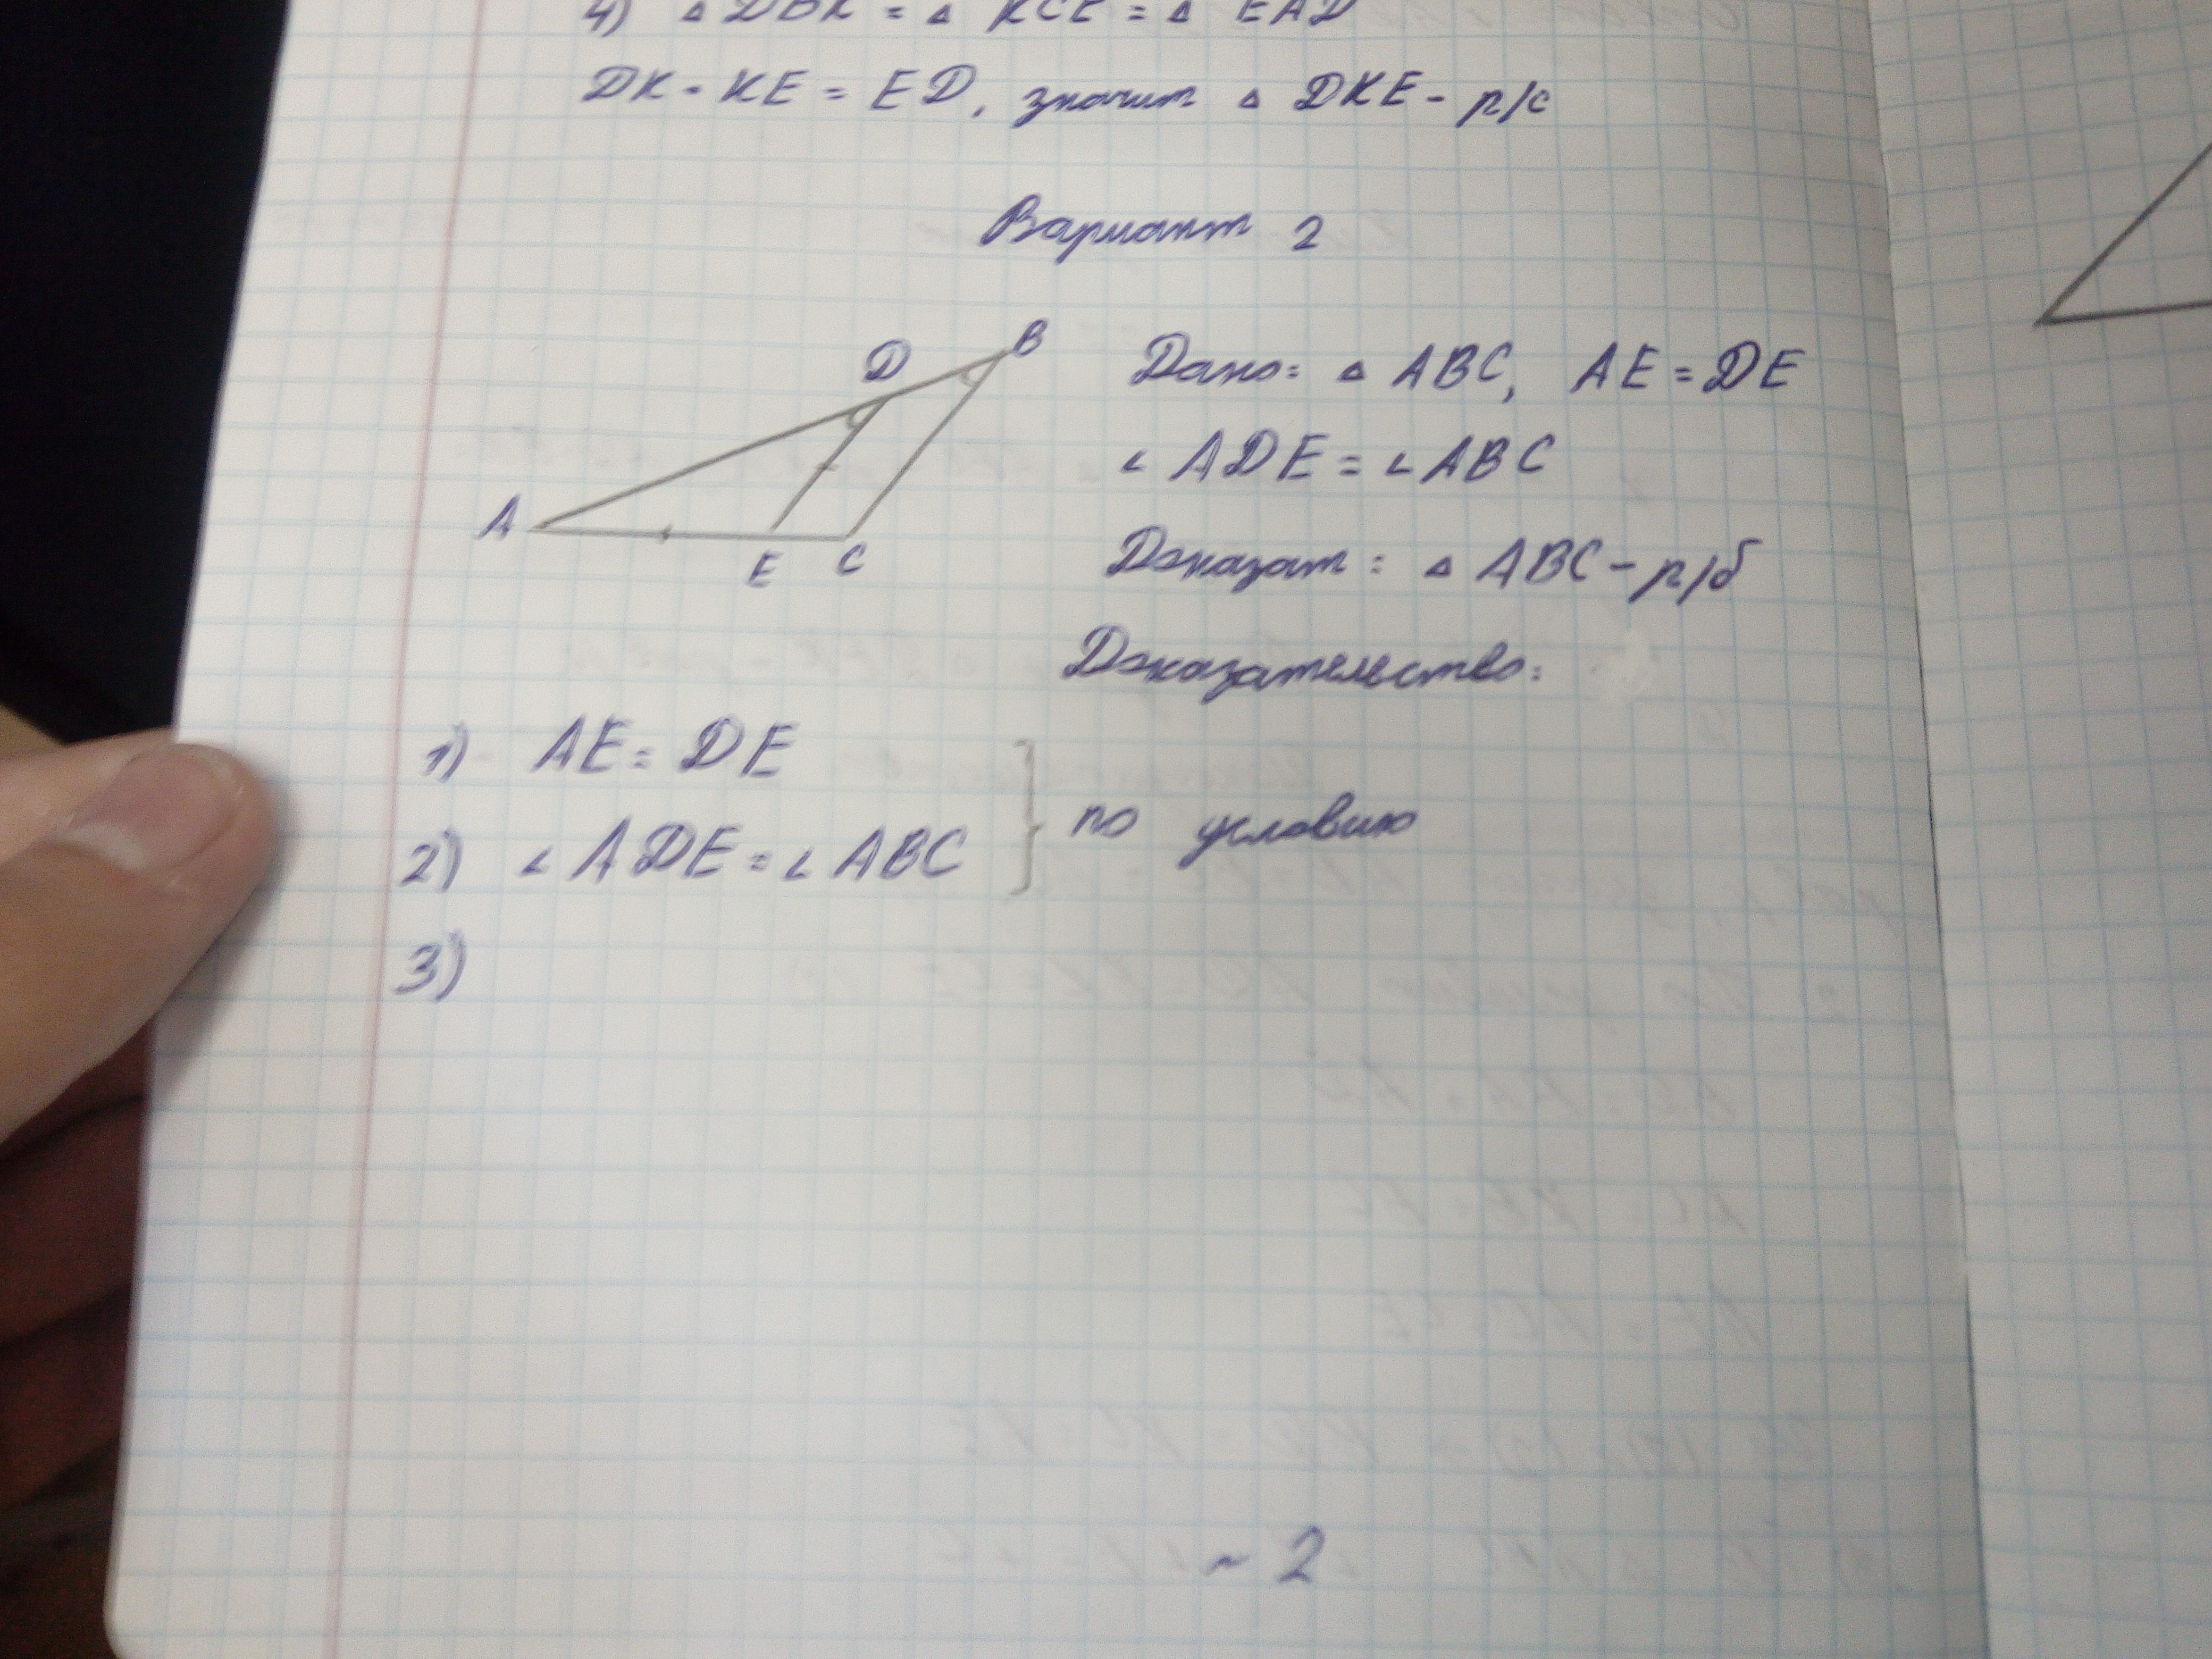 4) △ DBK = △ KCE = △ EAD
DK = KE = ED, значит △ DKE - р/с
Вариант 2
B
D
A
E C
Дано: △ ABC, AE = DE
∠ ADE = ∠ ABC
Доказат: △ ABC - р/б
Доказательство:
1) AE = DE
2) ∠ ADE = ∠ ABC } по условию
3)
~ 2